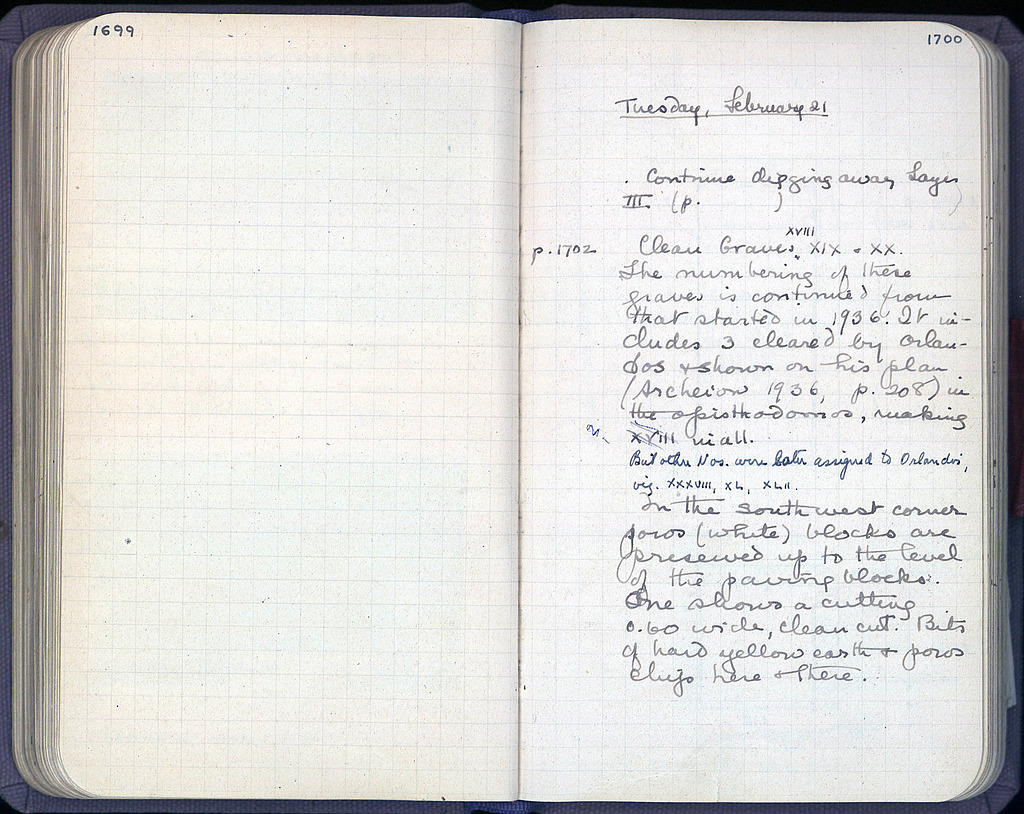 1699
1700
Tuesday, February 21
. Continue digging away Layer
III (p. )
p. 1702 Clean Graves XVIII, XIX & XX.
The numbering of these
graves is continued from
that started in 1936. It in-
cludes 3 cleared by Orlan-
dos & shown on his plan
(Archeion 1936, p. 208) in
the opisthodomos, making
XVIII in all.
But other Nos. were later assigned to Orlandos',
viz. XXXVIII, XL, XLII.
In the southwest corner
poros (white) blocks are
preserved up to the level
of the paving blocks.
One shows a cutting
0.60 wide, clean cut. Bits
of hard yellow earth & poros
chips here & there.